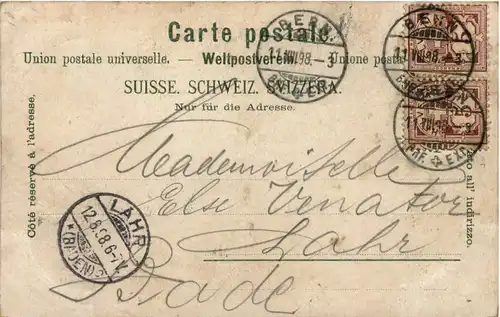 Carte postale.
Union postale universelle. — Weltpostverein. — Unione posta
SUISSE. SCHWEIZ. SVIZZERA.
Nur für die Adresse.
Côté réservé à l'adresse.
all' indirizzo.
BERN
11.VIII.98.–3
BERN
11.VIII.98.–3
11.VIII.98.–3
EXP.
Mademoiselle
Else Venator
Lahr
Bade
LAHR
12.8.98.6-7V.
*(BADEN)